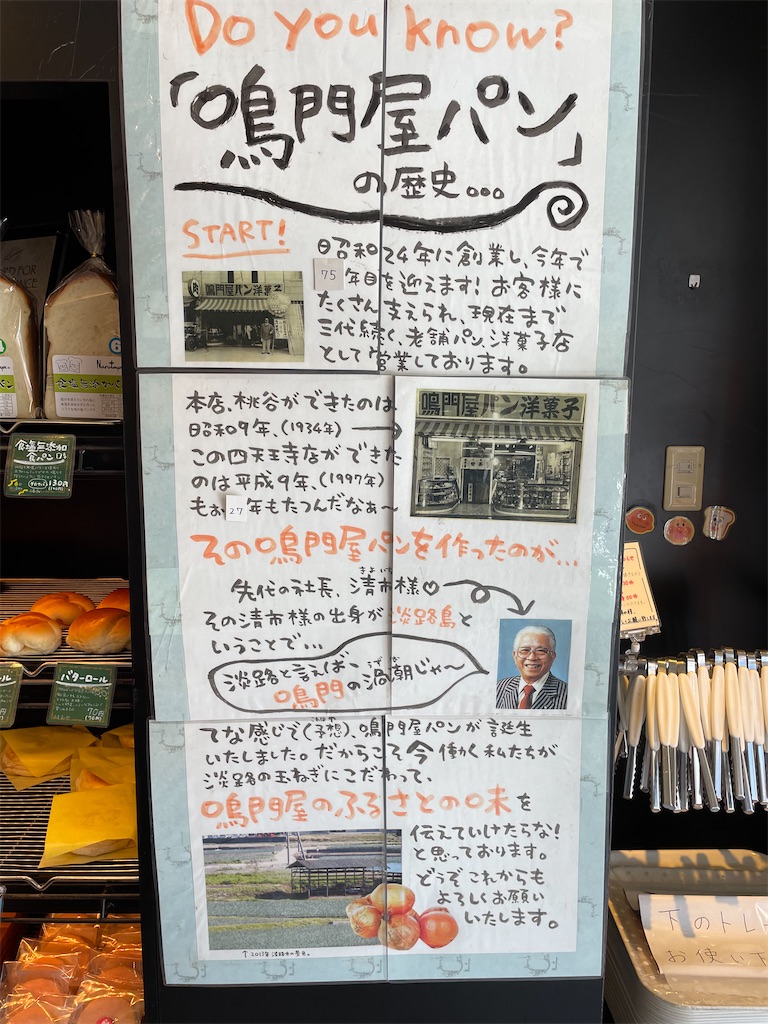 Do you know?
「鳴門屋パン」
の歴史。。。
START!
昭和24年に創業し、今年で
75年目を迎えます! お客様に
たくさん支えられ、現在まで
三代続く、老舗パン、洋菓子店
として営業しております。
鳴門屋パン洋菓子
本店、桃谷ができたのは
昭和9年、(1934年)
この四天王寺店ができた
のは平成9年、(1997年)
もぉ27年もたつんだなぁ〜
鳴門屋パン洋菓子
その鳴門屋パンを作ったのが…
先代の社長、清市様♡
きよいち
その清市様の出身が淡路島と
いうことで…
淡路と言えばー
鳴門の渦潮じゃ〜
うずしお
てな感じで(予想)、鳴門屋パンが誕生
いたしました。だからこそ今働く私たちが
淡路の玉ねぎにこだわって、
鳴門屋のふるさとの味を
伝えていけたらな!
と思っております。
どうぞこれからも
よろしくお願い
いたします。
食塩無添加
食パン
130円
バターロール
70円
下のトレー
お使い下